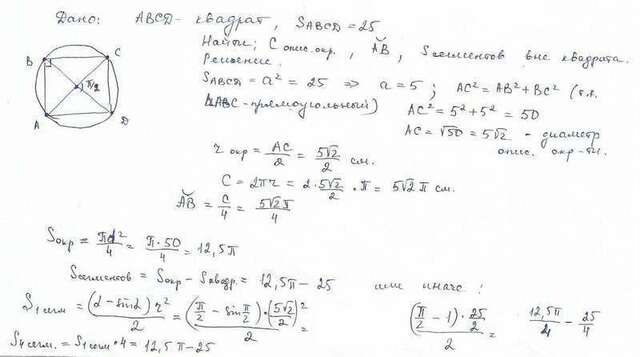 Дано: ABCD - квадрат, SABCD = 25
Найти: C опис. окр., ᴗAB, Sсегментов вне квадрата.
Решение.
SABCD = a² = 25 ⇒ a = 5; AC² = AB² + BC² (т.к.
ΔABC - прямоугольный) AC² = 5² + 5² = 50
AC = √50 = 5√2 - диаметр
опис. окр-ти.
B C
π/2
A D
r окр = AC/2 = 5√2/2 см.
C = 2πr = 2 · 5√2/2 · π = 5√2 π см.
ᴗAB = C/4 = 5√2π/4
Sокр = πd²/4 = π·50/4 = 12,5π
Sсегментов = Sокр - Sквадр. = 12,5π - 25 или иначе:
S1сегм = (α - sinα) r²/2 = (π/2 - sin π/2)·(5√2/2)²/2 = (π/2 - 1)·25/2/2 = 12,5π/4 - 25/4
S4сегм. = S1сегм · 4 = 12,5π - 25